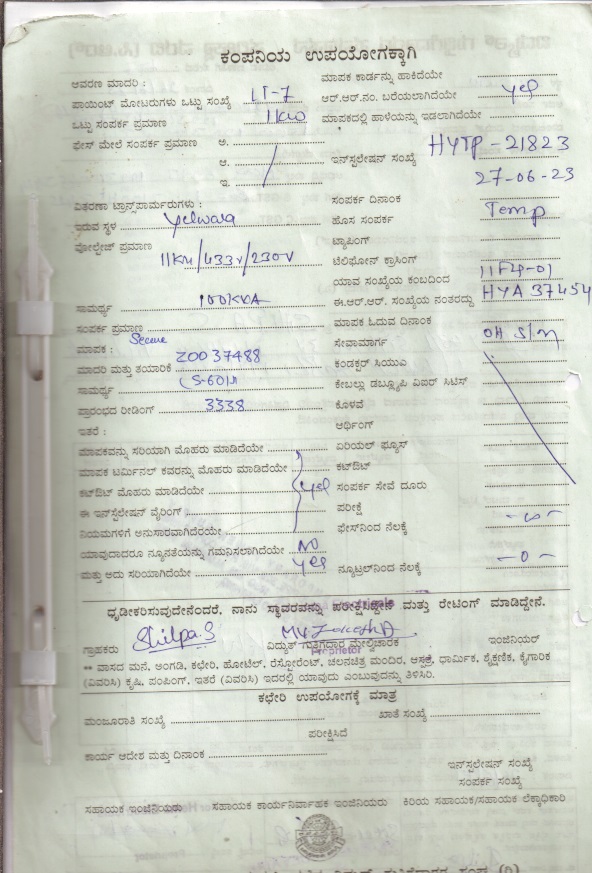 ಕಂಪನಿಯ ಉಪಯೋಗಕ್ಕಾಗಿ
ಆವರಣ ಮಾದರಿ :
ಪಾಯಿಂಟ್ ಮೋಟರುಗಳು ಒಟ್ಟು ಸಂಖ್ಯೆ LT-7
ಒಟ್ಟು ಸಂಪರ್ಕ ಪ್ರಮಾಣ 11KW
ಫೇಸ್ ಮೇಲೆ ಸಂಪರ್ಕ ಪ್ರಮಾಣ ಅ.
ಆ.
ಇ.
ವಿತರಣಾ ಟ್ರಾನ್ಸ್‌ಫಾರ್ಮರುಗಳು :
ಇರುವ ಸ್ಥಳ Yelwara
ವೋಲ್ಟೇಜ್ ಪ್ರಮಾಣ
11KV/433V/230V
ಸಾಮರ್ಥ್ಯ 100KVA
ಸಂಪರ್ಕ ಪ್ರಮಾಣ
ಮಾಪಕ : Secure
ಮಾದರಿ ಮತ್ತು ತಯಾರಿಕೆ Z0037488
ಸಾಮರ್ಥ್ಯ
ಪ್ರಾರಂಭದ ರೀಡಿಂಗ್ 3338
ಇತರೆ :
ಮಾಪಕವನ್ನು ಸರಿಯಾಗಿ ಮೊಹರು ಮಾಡಿದೆಯೇ
ಮಾಪಕ ಟರ್ಮಿನಲ್ ಕವರನ್ನು ಮೊಹರು ಮಾಡಿದೆಯೇ
ಕಟ್‌ಔಟ್ ಮೊಹರು ಮಾಡಿದೆಯೇ Yes
ಈ ಇನ್‌ಸ್ಟಲೇಷನ್ ವೈರಿಂಗ್
ನಿಯಮಗಳಿಗೆ ಅನುಸಾರವಾಗಿದೆಯೇ
ಯಾವುದಾದರೂ ನ್ಯೂನತೆಯನ್ನು ಗಮನಿಸಲಾಗಿದೆಯೇ NO
ಮತ್ತು ಅದು ಸರಿಯಾಗಿದೆಯೇ Yes
ಮಾಪಕ ಕಾರ್ಡನ್ನು ಹಾಕಿದೆಯೇ
ಆರ್.ಆರ್.ನಂ. ಬರೆಯಲಾಗಿದೆಯೇ Yes
ಮಾಪಕದಲ್ಲಿ ಹಾಳೆಯನ್ನು ಇಡಲಾಗಿದೆಯೇ
ಇನ್‌ಸ್ಟಲೇಷನ್ ಸಂಖ್ಯೆ HYTP-21823
27-06-23
ಸಂಪರ್ಕ ದಿನಾಂಕ
ಹೊಸ ಸಂಪರ್ಕ Temp
ಟ್ಯಾಪಿಂಗ್
ಟೆಲಿಫೋನ್ ಕ್ರಾಸಿಂಗ್
ಯಾವ ಸಂಖ್ಯೆಯ ಕಂಬದಿಂದ
ಈ.ಆರ್.ಆರ್. ಸಂಖ್ಯೆಯ ನಂತರದ್ದು HYA 37454
ಮಾಪಕ ಓದುವ ದಿನಾಂಕ
ಸೇವಾಮಾರ್ಗ OH S/m
ಕಂಡಕ್ಟರ್ ಸಿಯುಎ
ಕೇಬಲ್ಲು ಡಬ್ಲ್ಯೂಪಿ ವಿಐರ್ ಸಿಟಿಸ್
ಕೊಳವೆ
ಅರ್ಥಿಂಗ್
ಏರಿಯಲ್ ಫ್ಯೂಸ್
ಕಟ್‌ಔಟ್
ಸಂಪರ್ಕ ಸೇವೆ ದೂರು
ಪರೀಕ್ಷೆ
ಫೇಸ್‌ನಿಂದ ನೆಲಕ್ಕೆ
ನ್ಯೂಟ್ರಲ್‌ನಿಂದ ನೆಲಕ್ಕೆ -0-
ಧೃಡೀಕರಿಸುವುದೇನೆಂದರೆ, ನಾನು ಸ್ಥಾವರವನ್ನು ಪರೀಕ್ಷಿಸಿದ್ದೇನೆ ಮತ್ತು ರೇಟಿಂಗ್ ಮಾಡಿದ್ದೇನೆ.
Shilpa.S
ಗ್ರಾಹಕರು ವಿದ್ಯುತ್ ಗುತ್ತಿಗೆದಾರ ಮೇಲ್ವಿಚಾರಕ ಇಂಜಿನಿಯರ್
Proprietor
** ವಾಸದ ಮನೆ, ಅಂಗಡಿ, ಕಛೇರಿ, ಹೋಟೆಲ್, ರೆಸ್ಟೋರೆಂಟ್, ಚಲನಚಿತ್ರ ಮಂದಿರ, ಆಸ್ಪತ್ರೆ, ಧಾರ್ಮಿಕ, ಶೈಕ್ಷಣಿಕ, ಕೈಗಾರಿಕ
(ವಿವರಿಸಿ) ಕೃಷಿ, ಪಂಪಿಂಗ್, ಇತರೆ (ವಿವರಿಸಿ) ಇದರಲ್ಲಿ ಯಾವುದು ಎಂಬುವುದನ್ನು ತಿಳಿಸಿರಿ.
ಕಛೇರಿ ಉಪಯೋಗಕ್ಕೆ ಮಾತ್ರ
ಮಂಜೂರಾತಿ ಸಂಖ್ಯೆ ಖಾತೆ ಸಂಖ್ಯೆ
ಪರೀಕ್ಷಿಸಿದೆ
ಕಾರ್ಯ ಆದೇಶ ಮತ್ತು ದಿನಾಂಕ
ಇನ್‌ಸ್ಟಲೇಷನ್ ಸಂಖ್ಯೆ
ಸಂಪರ್ಕ ಸಂಖ್ಯೆ
ಸಹಾಯಕ ಇಂಜಿನಿಯರು ಸಹಾಯಕ ಕಾರ್ಯನಿರ್ವಾಹಕ ಇಂಜಿನಿಯರು ಕಿರಿಯ ಸಹಾಯಕ/ಸಹಾಯಕ ಲೆಕ್ಕಾಧಿಕಾರಿ